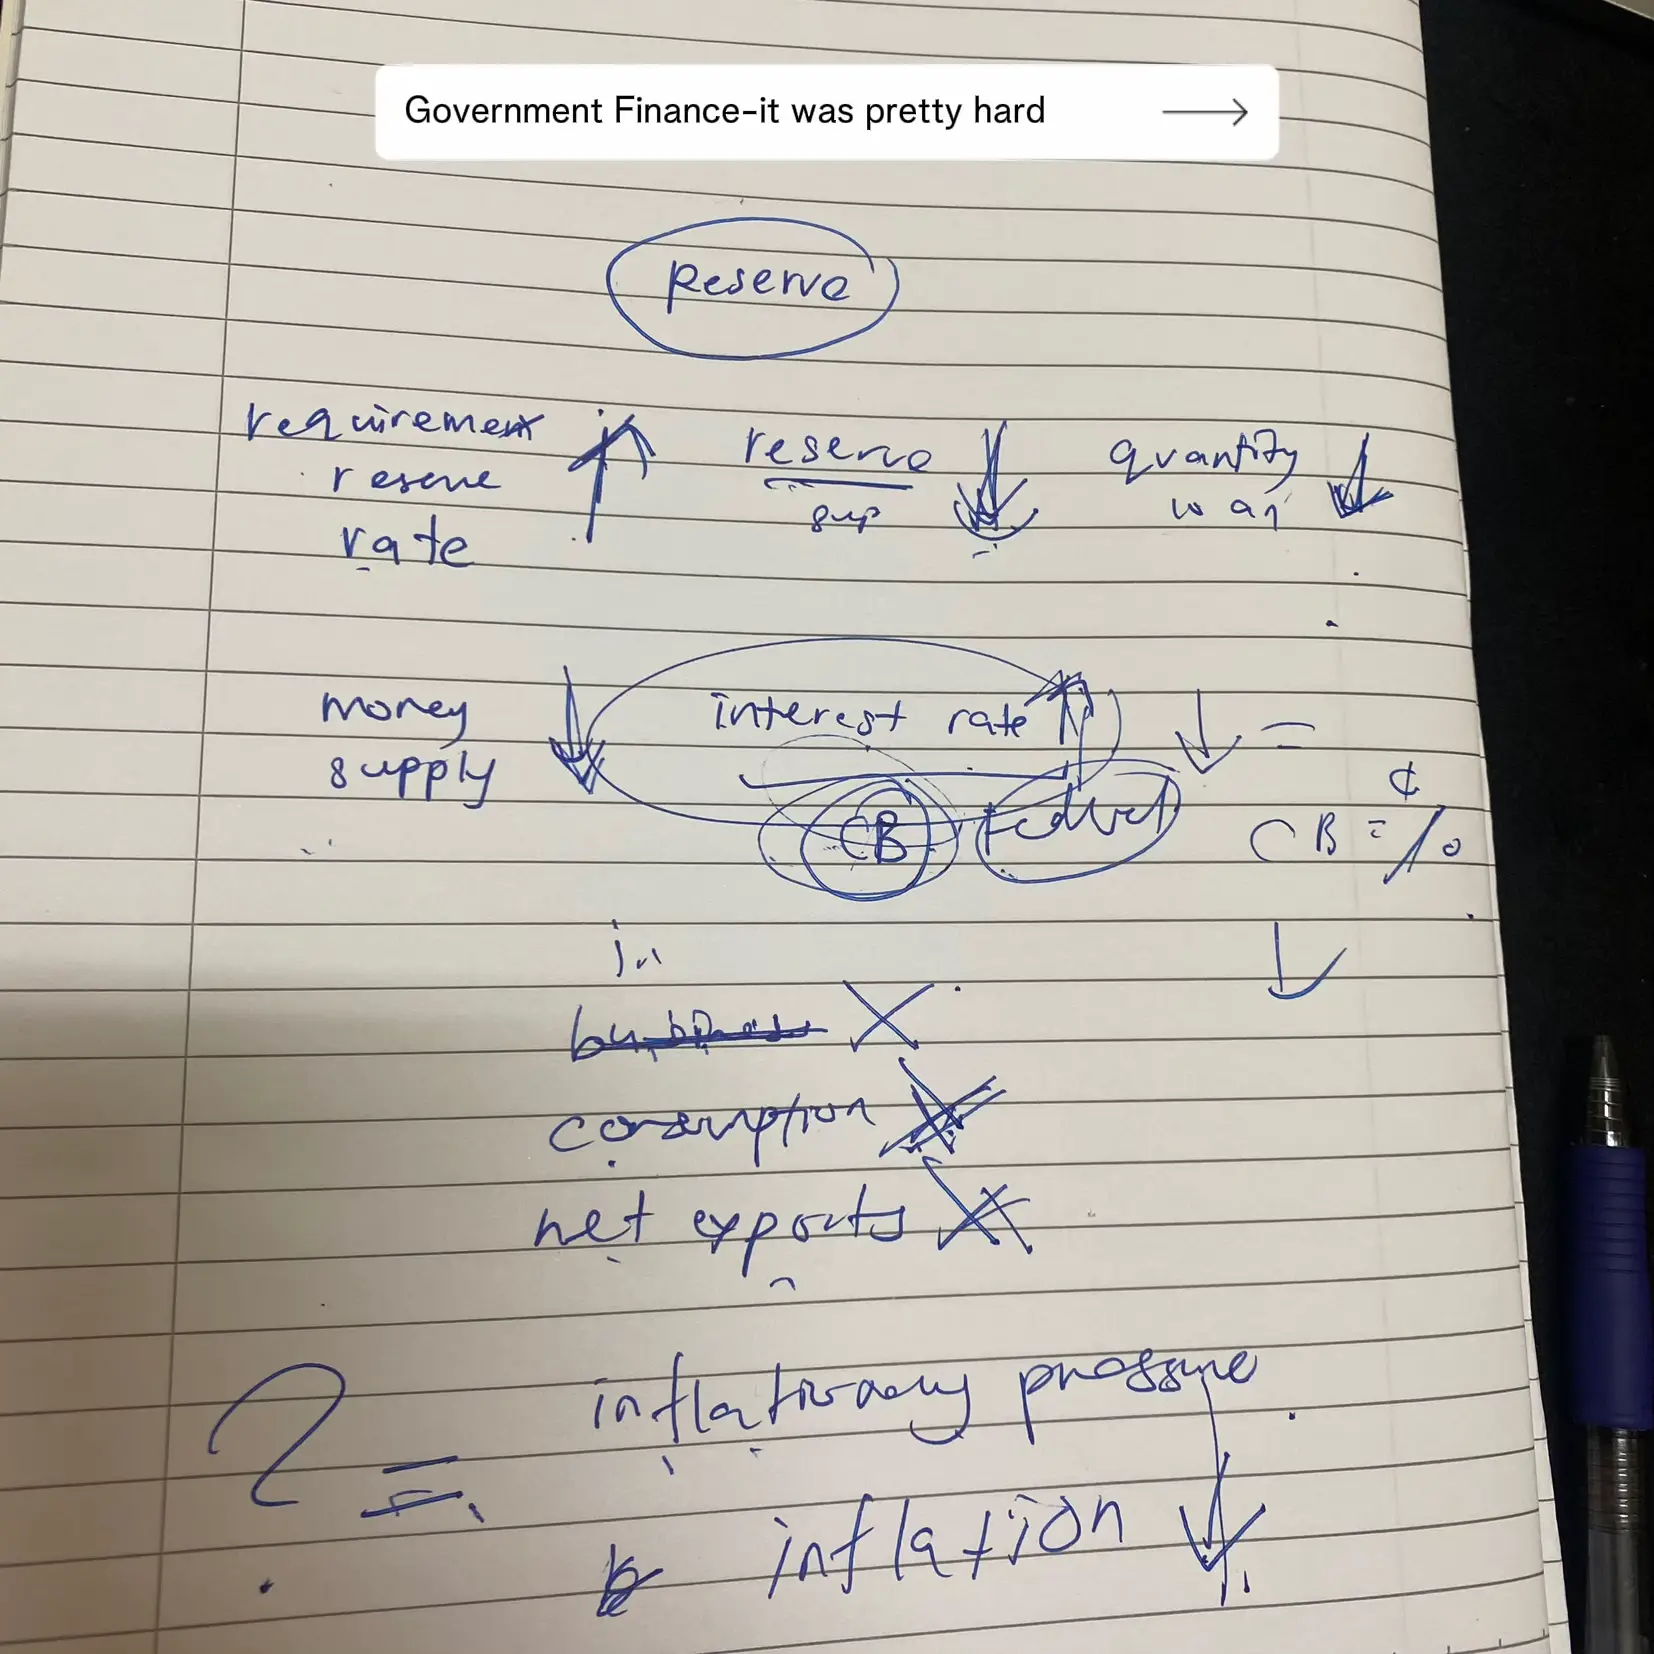 Government Finance-it was pretty hard
Reserve
requirement ↑ reserve ↓ quantity ↓
reserve sup
rate
money ↓ interest rate ↑ ↓ =
supply
CB ¢
CB = %
in
business X
consumption X
net exports X
inflationary pressure
? =
inflation ↓